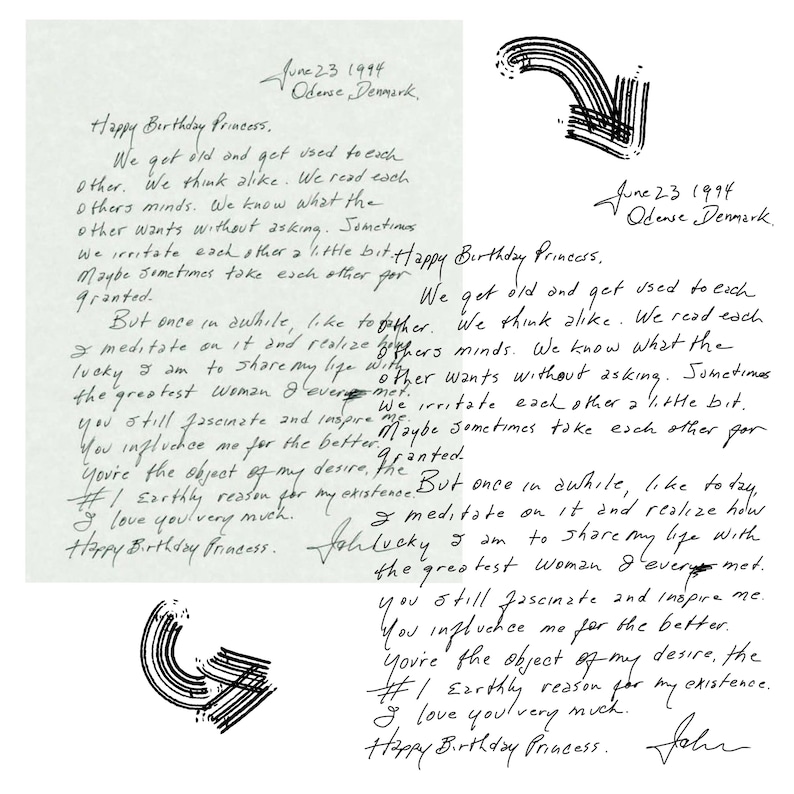 June 23 1994
Odense, Denmark.
Happy Birthday Princess,
We get old and get used to each
other. We think alike. We read each
others minds. We know what the
other wants without asking. Sometimes
we irritate each other a little bit.
Maybe sometimes take each other for
granted.
But once in awhile, like today,
I meditate on it and realize how
lucky I am to share my life with
the greatest woman I ever met.
You still fascinate and inspire me.
You influence me for the better.
You're the object of my desire, the
#1 Earthly reason for my existence.
I love you very much.
Happy Birthday Princess.
John
June 23 1994
Odense, Denmark.
Happy Birthday Princess,
We get old and get used to each
other. We think alike. We read each
others minds. We know what the
other wants without asking. Sometimes
we irritate each other a little bit.
Maybe sometimes take each other for
granted.
But once in awhile, like today,
I meditate on it and realize how
lucky I am to share my life with
the greatest woman I ever met.
You still fascinate and inspire me.
You influence me for the better.
You're the object of my desire, the
#1 Earthly reason for my existence.
I love you very much.
Happy Birthday Princess.
John